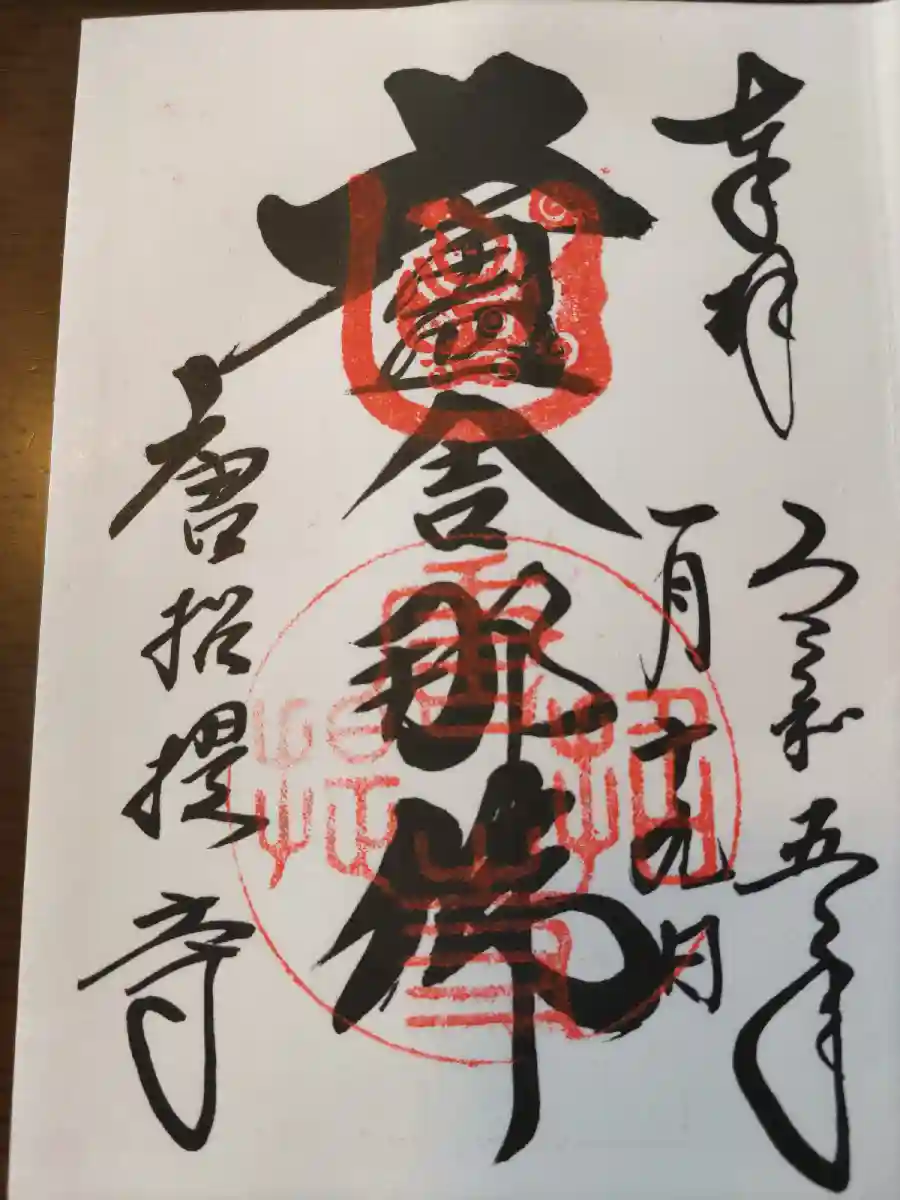 奉拝
令和五年
一月十九日
盧舎那佛
唐招提寺